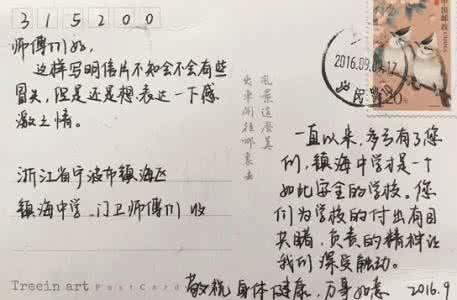 315200
师傅们好，
这样写明信片不知会不会有些
冒失，但是还是想表达一下感
激之情。
浙江省宁波市镇海区
镇海中学 门卫师傅们 收
Treein art POSTCARD
風景這麼美
火車開往哪裏去
中国邮政
CHINA
1.20
2016.09.09.17
一直以来，多亏有了您
们，镇海中学才是一个
如此安全的学校。您
们为学校的付出有目
共睹，负责的精神让
我们深受触动。
敬祝 身体健康，万事如意 2016.9